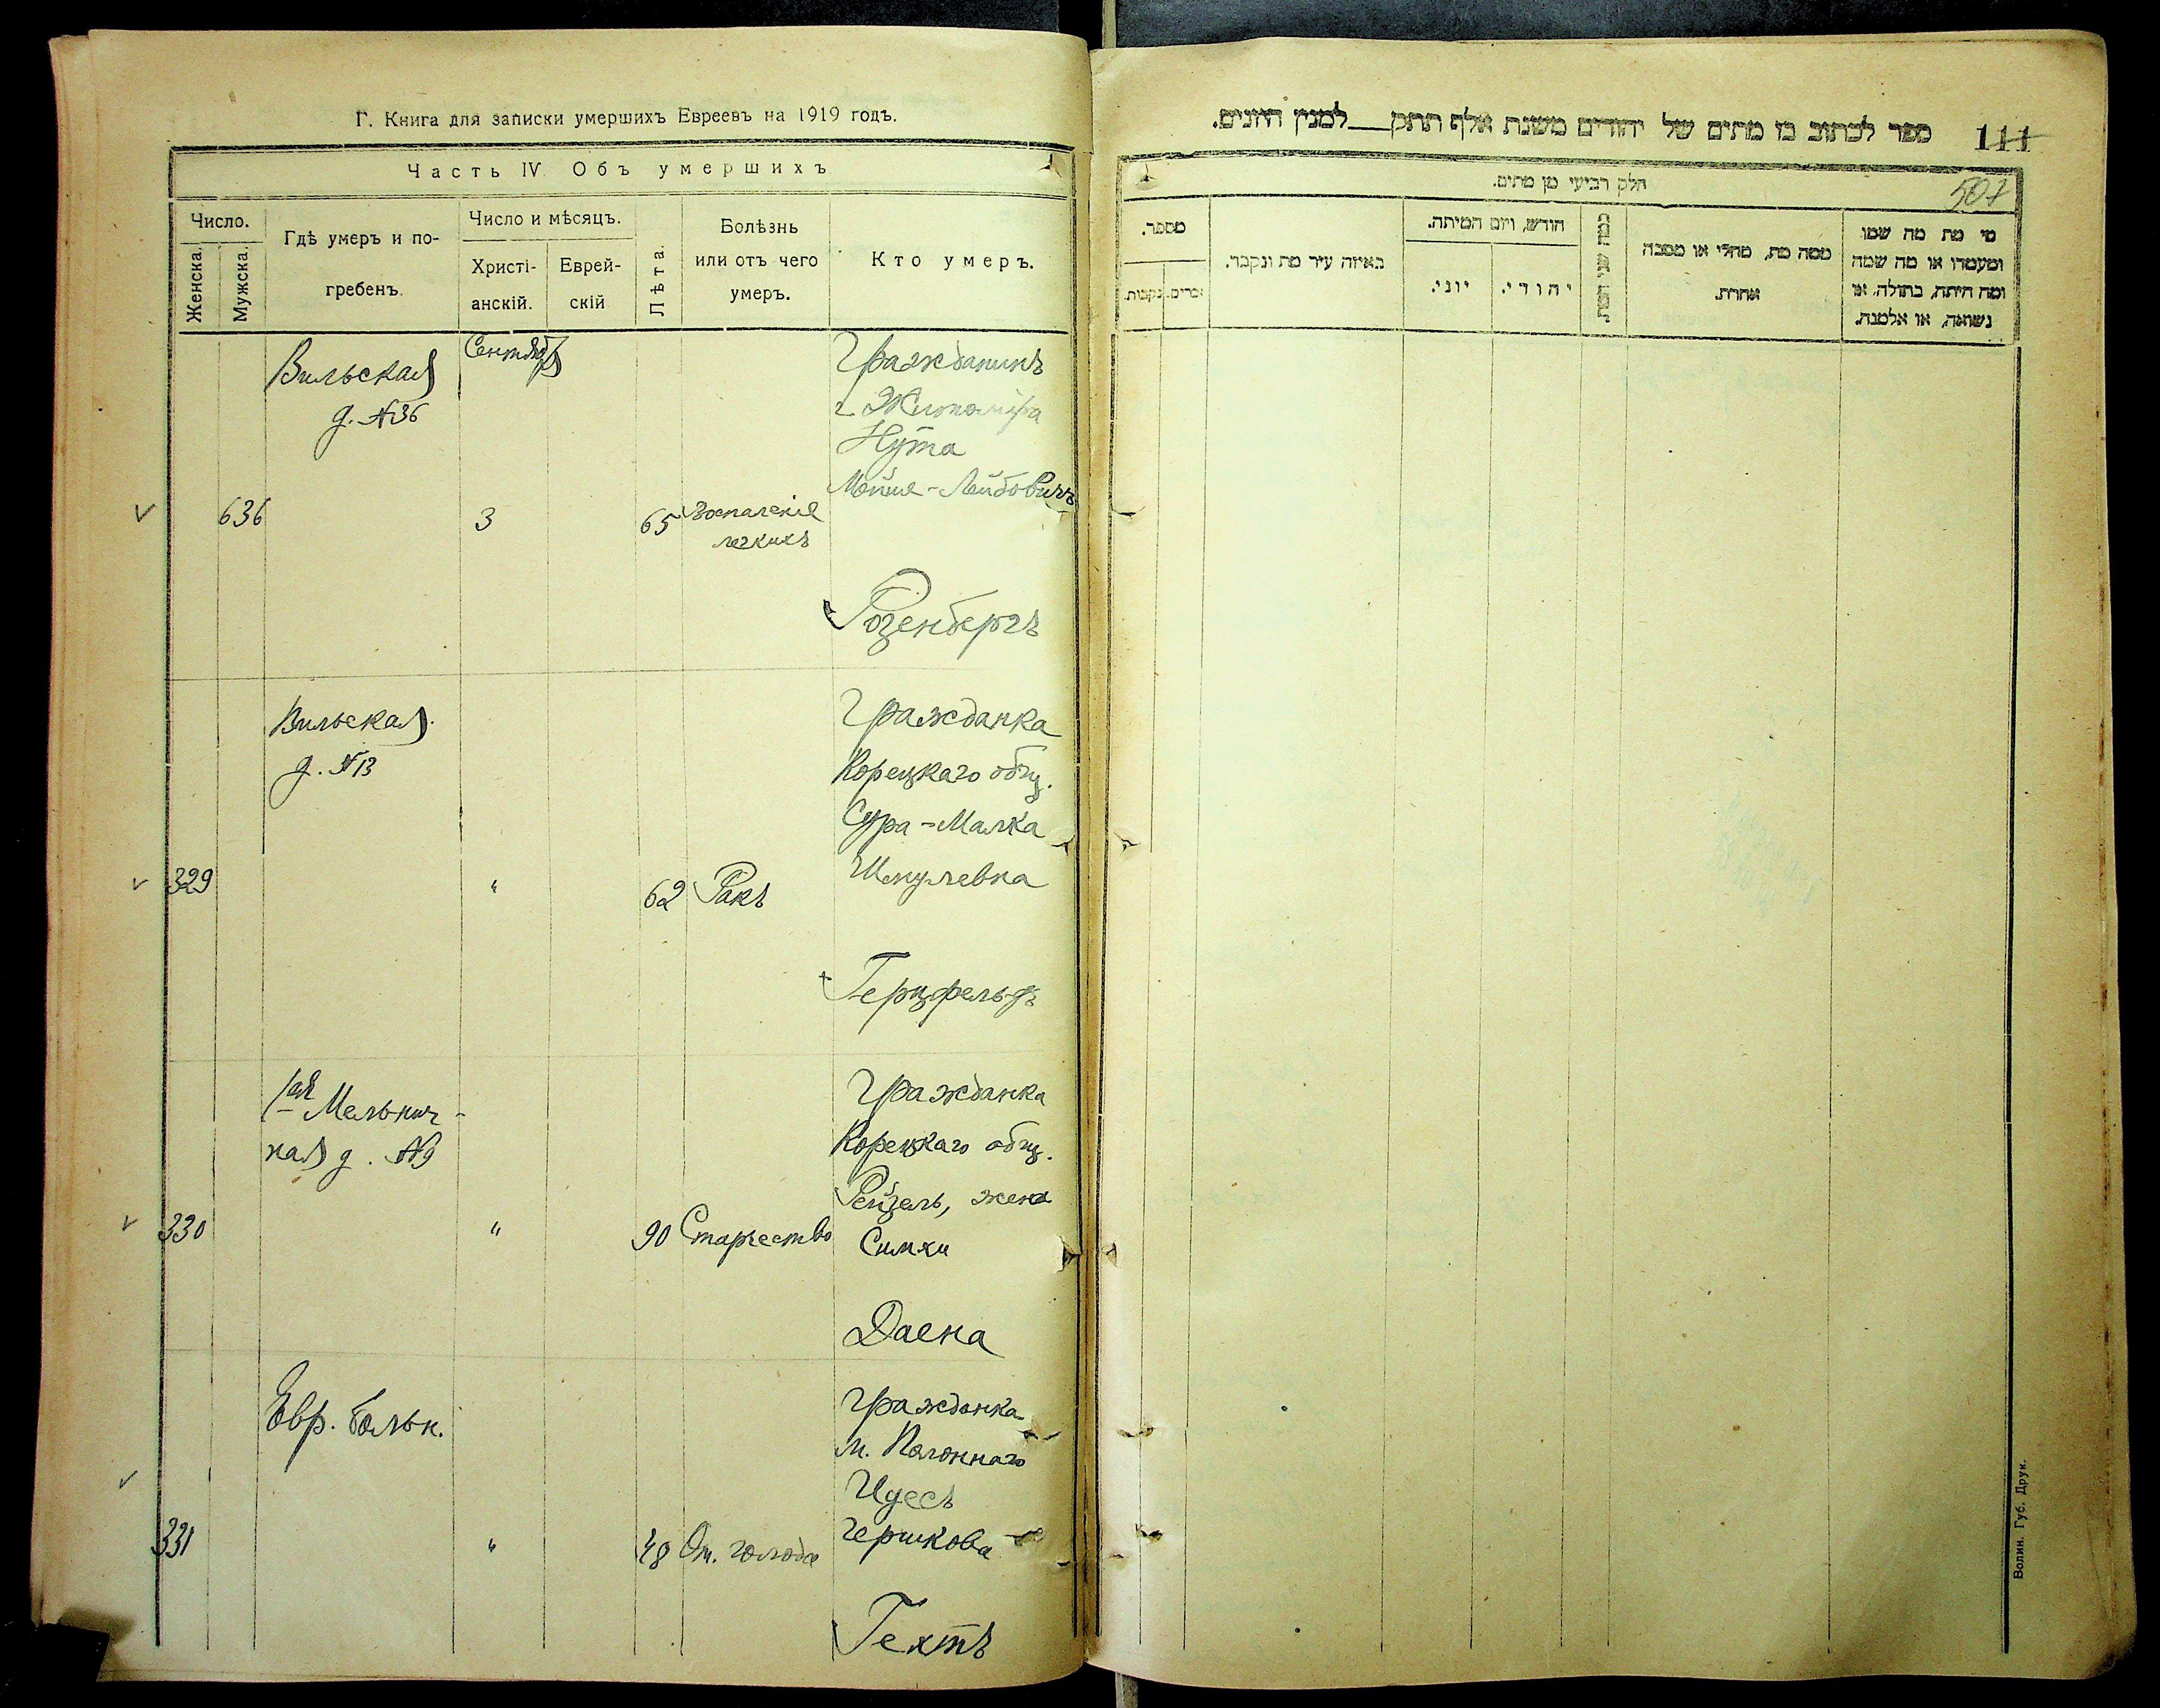 Г. Книга для записки умершихъ Евреевъ на 1919 годъ.
Часть IV Объ умершихъ
Число.
Женска.
Мужска.
Гдѣ умеръ и по-
гребенъ
Число и мѣсяцъ.
Христі-
анскій.
Еврей-
скій
Лѣта
Болѣзнь
или отъ чего
умеръ.
Кто умеръ.
Вильская
д. №36
Сентября
Гражданинъ
г. Житомира
Нута
Мойше-Лейбовичъ
636
3
65
Воспаленіе
легкихъ
Розенбергъ
Вильская
д. №13
Гражданка
Корецкаго общ.
Сура-Малка
Шмулевна
329
"
62
Ракъ
Герцфельдъ
1ая Мельнич-
ная д. №9
Гражданка
Корецкаго общ.
Рейзель, жена
Симхи
330
"
90
Старчество
Даена
Евр. больн.
Гражданка
м. Полоннаго
Идесъ
Гершкова
331
"
48
От. голода
Гехтъ
ספר לכתוב בו מתים של יהודים משנת אלף תתק__למנין היונים.
111
507
חלק רביעי מן מתים.
מספר.
זכרים.
נקבות.
באיזה עיר מת ונקבר.
חודש, ויום המיתה.
יוני.
יהודי.
כמה שני המת
ממה מת, מחלי או מסבה
אחרת.
מי מת מה שמו
ומעמדו או מה שמה
ומה היתה, בתולה, או
נשואה, או אלמנה.
Волин. Губ. Друк.